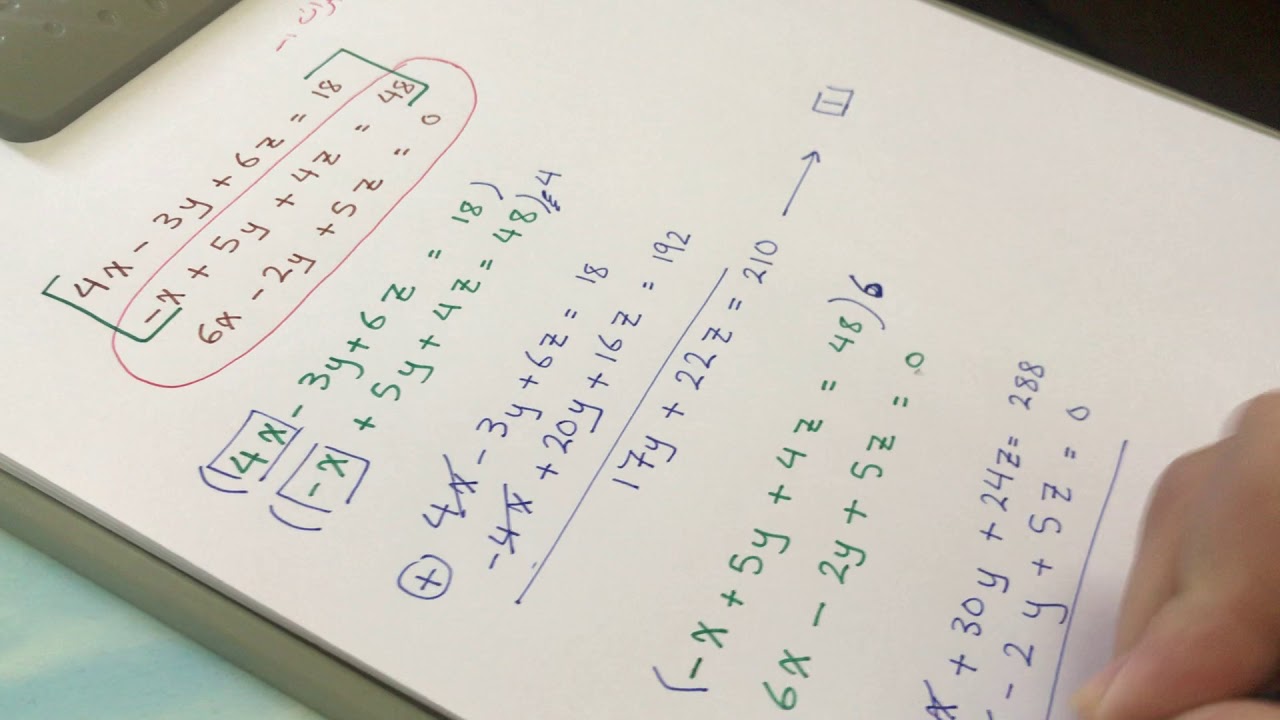 4x - 3y + 6z = 18
-x + 5y + 4z = 48
6x - 2y + 5z = 0
(4x - 3y + 6z = 18)
(-x + 5y + 4z = 48) 4
+
4x - 3y + 6z = 18
-4x + 20y + 16z = 192
17y + 22z = 210 → 1
(-x + 5y + 4z = 48) 6
6x - 2y + 5z = 0
x + 30y + 24z = 288
- 2y + 5z = 0